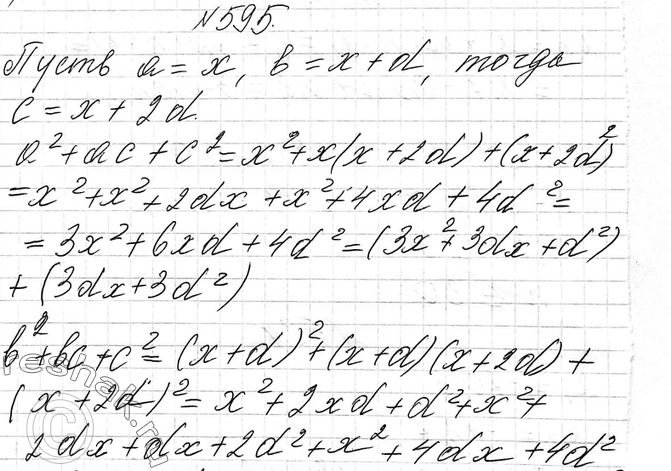 №595.
Пусть a = x, b = x + d, тогда
c = x + 2d.
a² + ac + c² = x² + x(x + 2d) + (x + 2d)²
= x² + x² + 2dx + x² + 4xd + 4d² =
= 3x² + 6xd + 4d² = (3x² + 3dx + d²)
+ (3dx + 3d²)
b² + bc + c² = (x + d)² + (x + d)(x + 2d) +
(x + 2d)² = x² + 2xd + d² + x² +
2dx + dx + 2d² + x² + 4dx + 4d²
reshak.ru